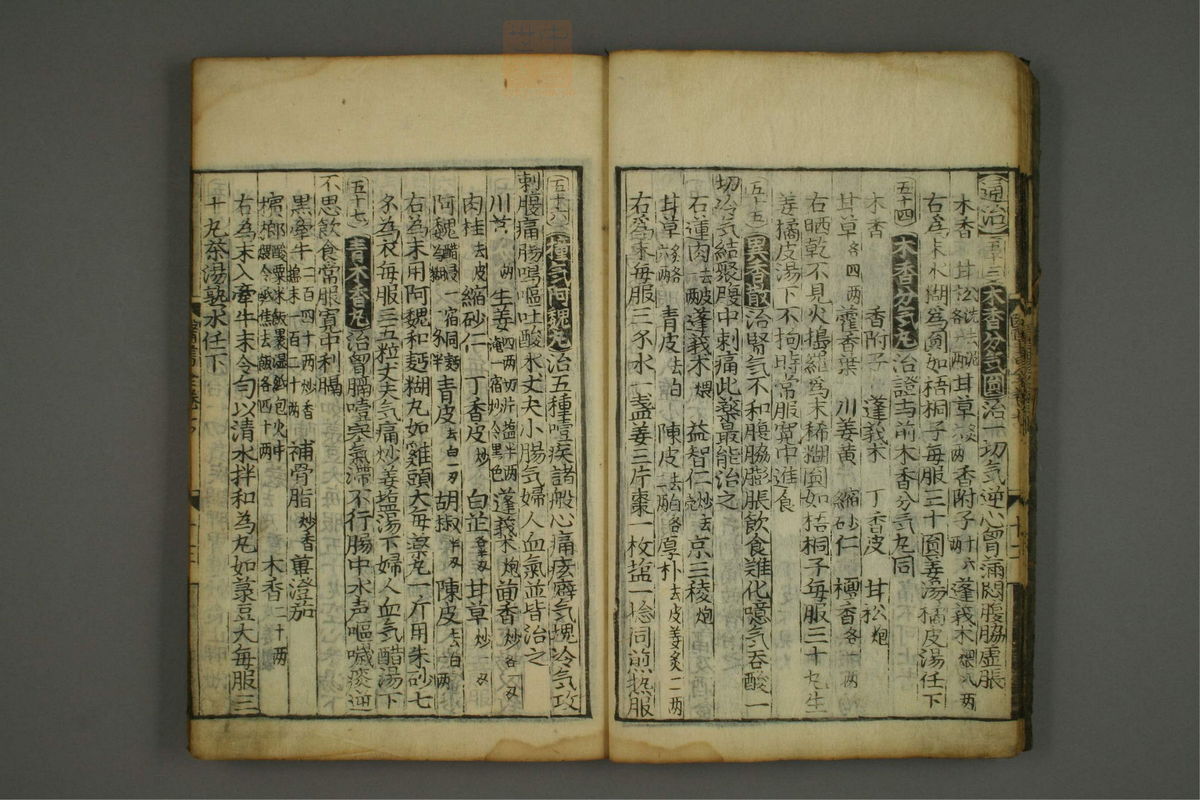 通治 五十三 木香分气圎 治一切气逆心胷满悶腹脇虚脹
木香 甘松 洗去泥各一两 甘草 六两 香附子 十六两 蓬莪术 煨八两
右為末水糊為圎如梧桐子每服三十圎姜湯橘皮湯任下
五十四 木香分气丸 治證与前木香分气丸同
木香 香附子 蓬莪术 丁香皮 甘松 炮
甘草 各四两 藿香葉 川姜黄 縮砂仁 檀香 各一两
右晒乾不見火搗羅為末稀糊圎如梧桐子每服三十丸生
姜橘皮湯下不拘時常服寛中進食
五十五 異香散 治腎气不和腹脇膨脹飲食難化噫气吞酸一
切冷气結聚腹中刺痛此藥最能治之
石蓮肉 去皮一两 蓬莪术 煨 益智仁 炒去壳 京三稜 炮
甘草 炙各六两 青皮 去白 陳皮 去白各三两 厚朴 去皮姜炙二两
右為末每服三分水一盏姜三片棗一枚塩一捻同煎热服
五十六 撞气阿魏丸 治五種噎疾諸般心痛痃癖气塊冷气攻
刺腹痛腸鳴嘔吐酸水丈夫小腸气婦人血氣並皆治之
川芎 两 生姜 四两切片塩半两淹一宿炒令黑色 蓬莪术 炮 茴香 炒各一刄
肉桂 去皮 縮砂仁 丁香皮 炒 白芷 各半刄 甘草 炒一刄
阿魏 醋浸一宿同麪為糊 各半 青皮 去白一刄 胡椒 半刄 陳皮 去白一两
右為末用阿魏和麪糊丸如雞頭大每藥丸一斤用朱砂七
分為衣每服三五粒丈夫气痛炒姜塩湯下婦人血气醋湯下
五十七 青木香丸 治胷膈噎塞氣滯不行腸中水声嘔噦痰逆
不思飲食常服寛中利膈
黑牽牛 二百四十两炒香搗末一百二十两 補骨脂 炒香 蓽澄茄 木香 二十两
檳榔 酸粟米飯裹湿紙包火中煨令紙焦去飯各四十两
右為末入牽牛末令匀以清水拌和為丸如菉豆大每服三
十丸茶湯熟水任下